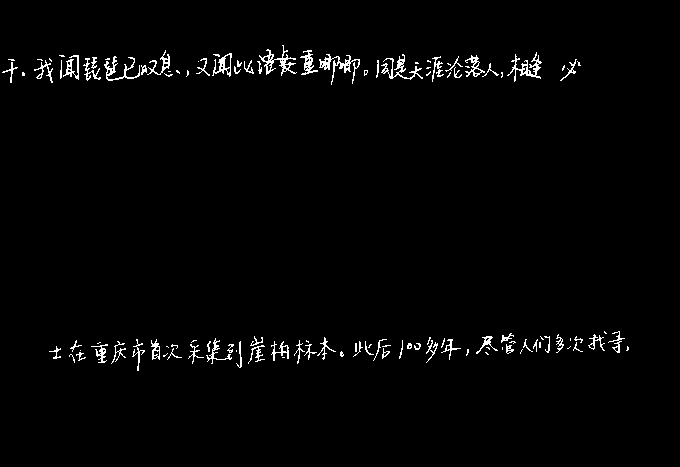 干。我闻琵琶已叹息,又闻此语重唧唧。同是天涯沦落人,相逢 必
士在重庆市首次采集到崖柏标本。此后100多年,尽管人们多次找寻,